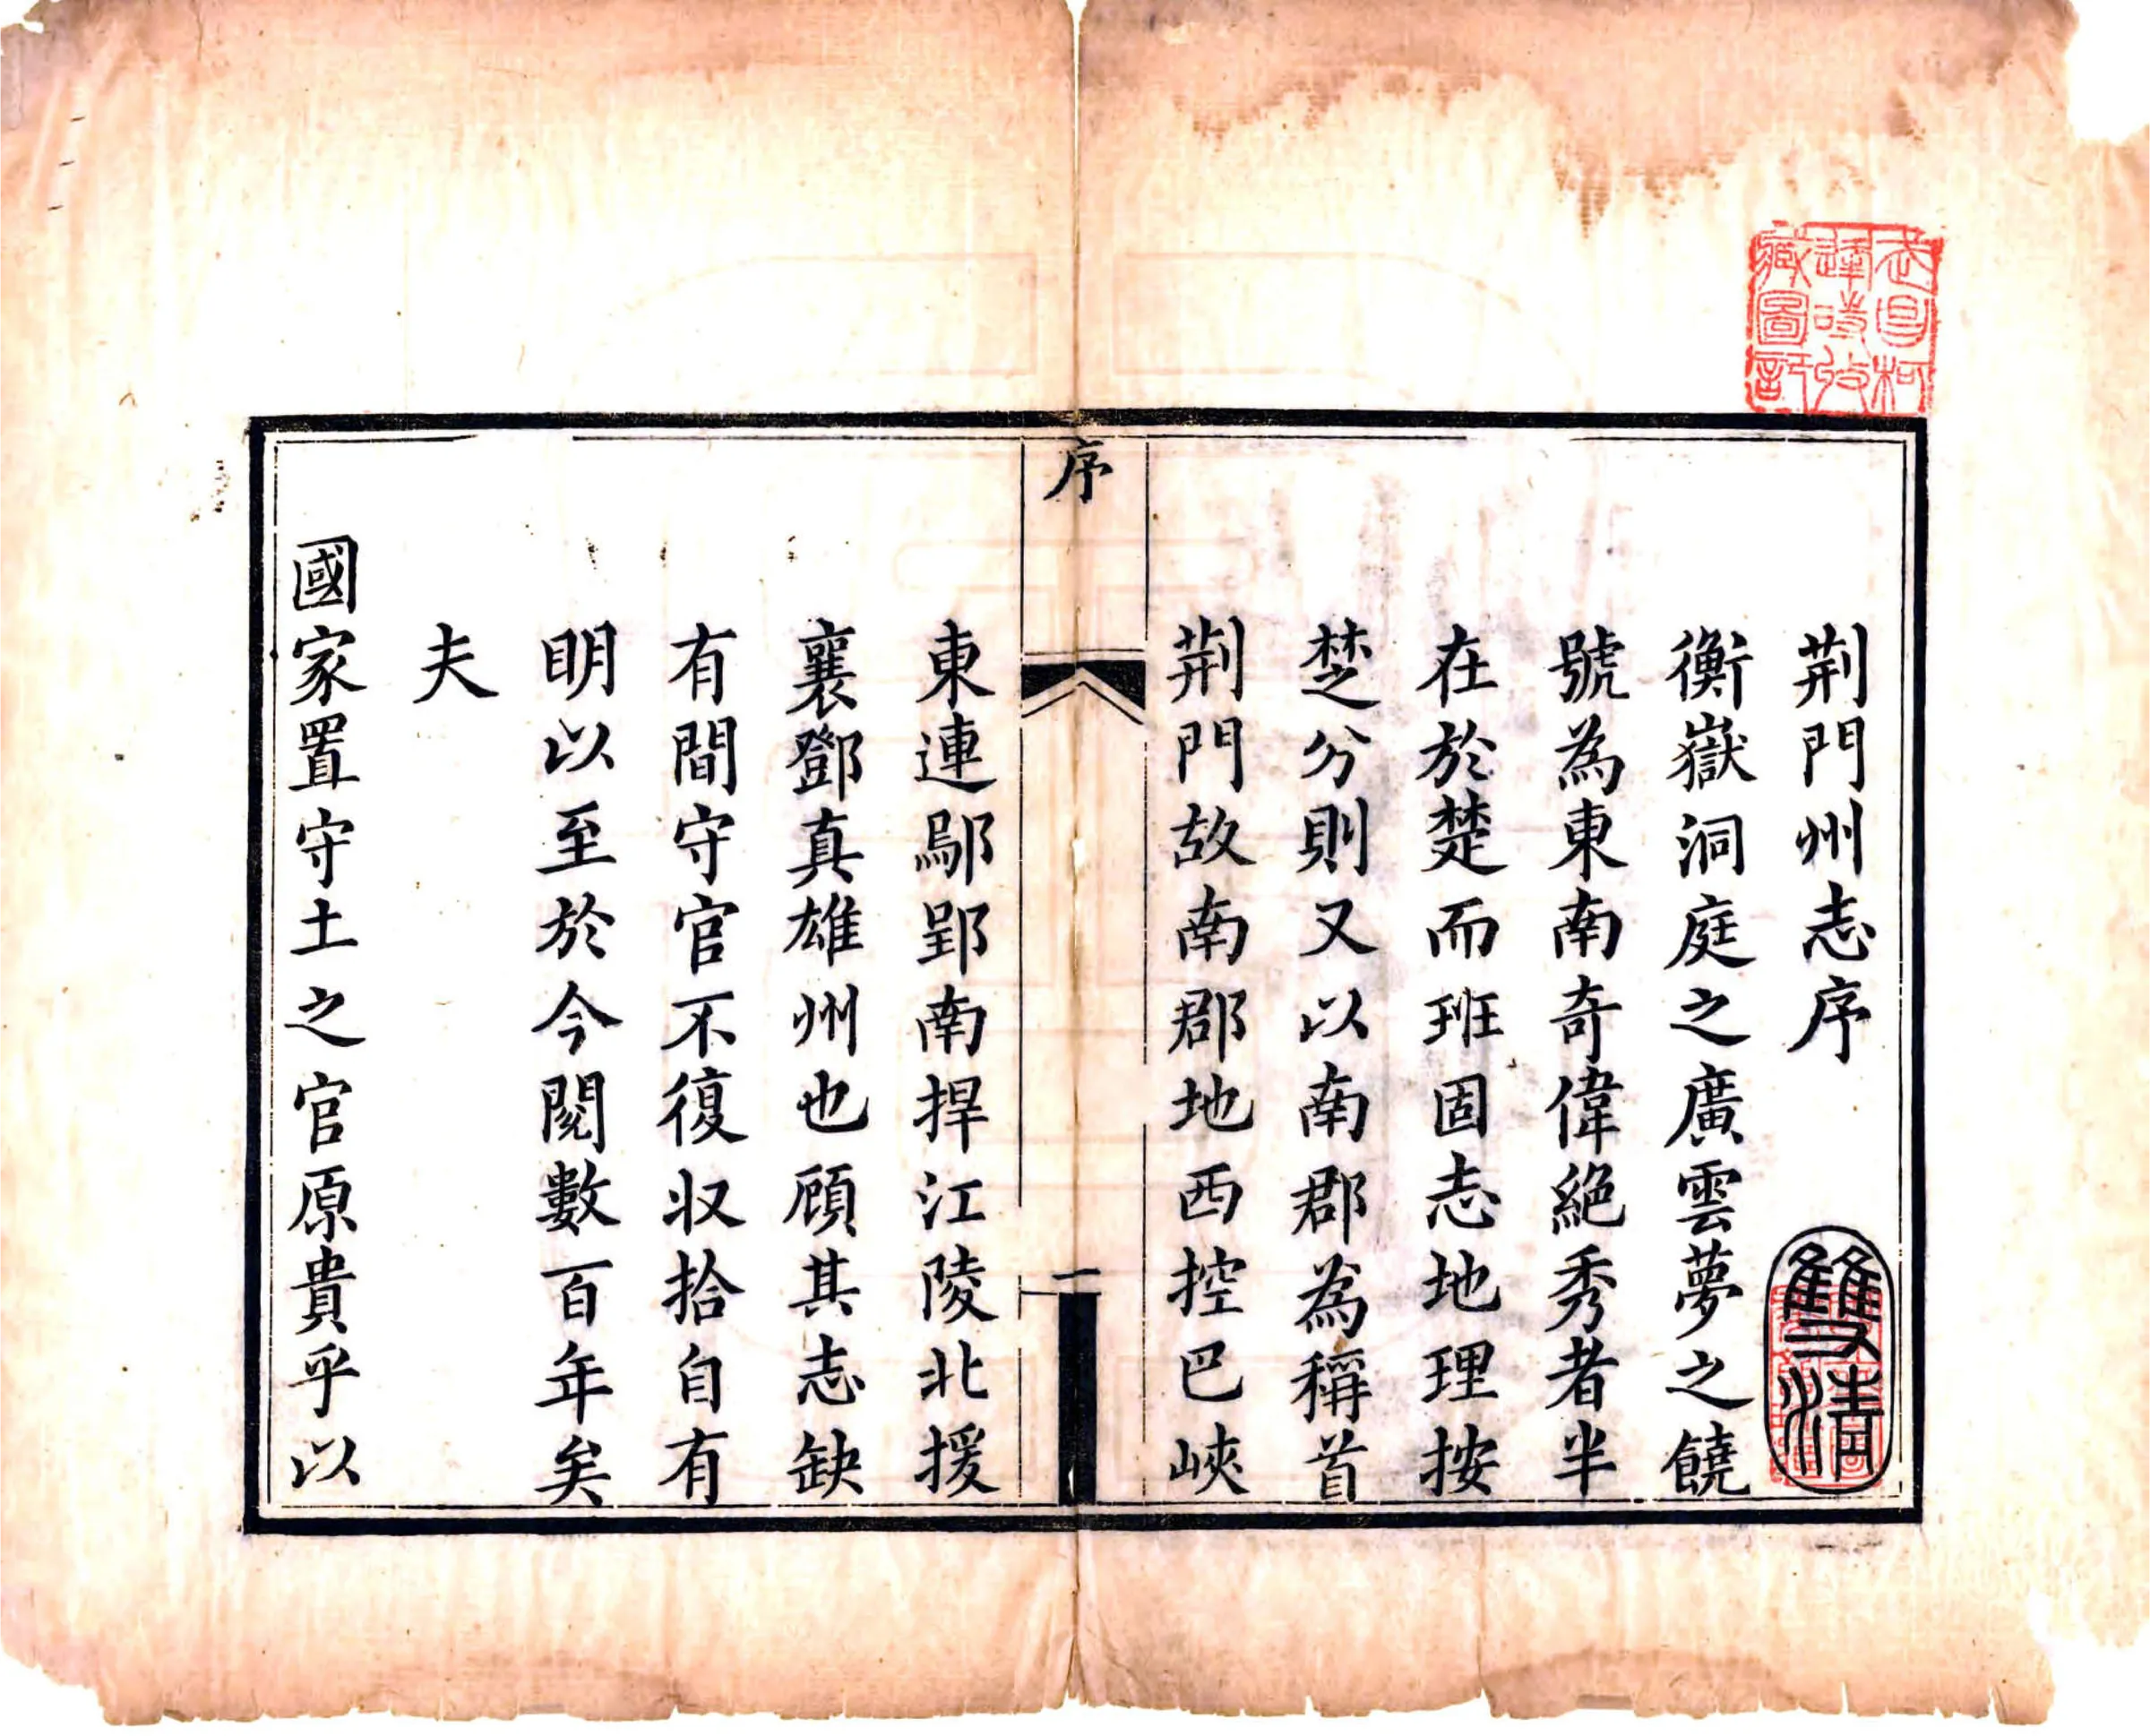 荆門州志序
衡嶽洞庭之廣雲夢之饒
號為東南奇偉絕秀者半
在於楚而班固志地理按
楚分則又以南郡為稱首
荆門故南郡地西控巴峽
序
一
東連鄢郢南捍江陵北援
襄鄧真雄州也顧其志缺
有間守官不復収拾自有
明以至於今閱數百年矣
夫
國家置守土之官原貴乎以
武昌柯
逢時收
藏圖記
雙清